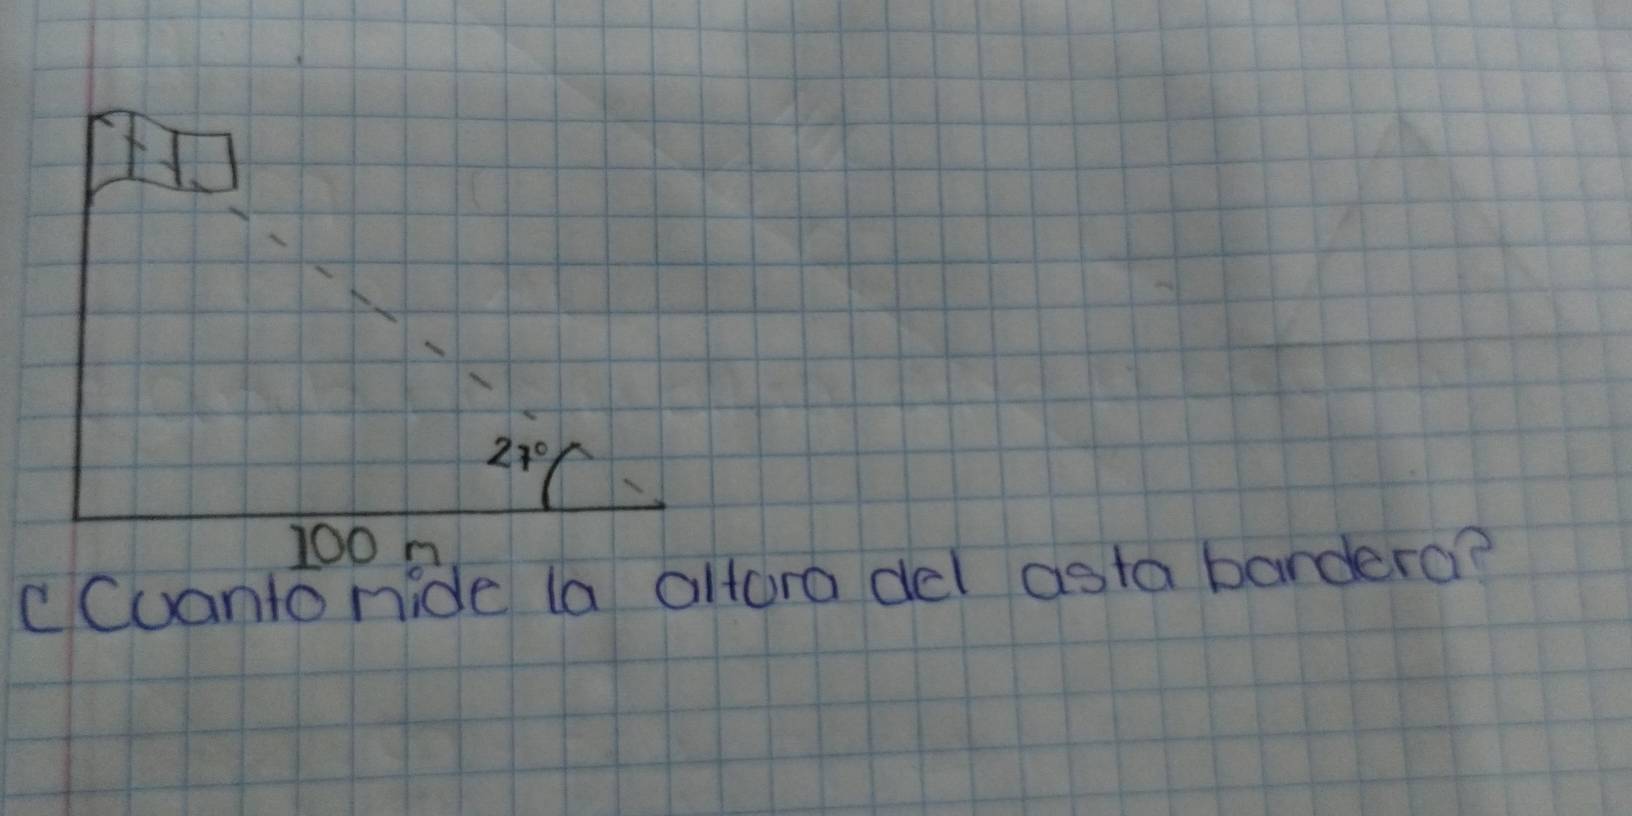 27°
100 m
¿Cuanto mide la altura del asta bandera?